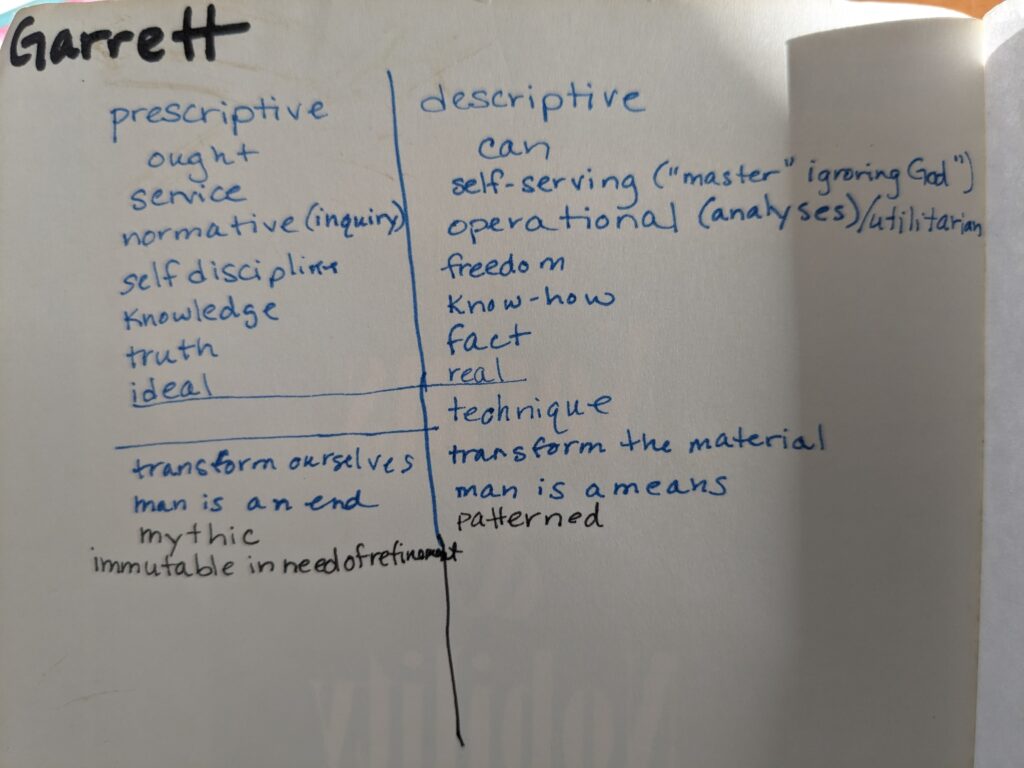 Garrett
prescriptive descriptive
ought can
service self-serving ("master" igroring God")
normative (inquiry) operational (analyses)/utilitarian
self discipline freedom
knowledge know-how
truth fact
ideal real
technique
transform ourselves transform the material
man is an end man is a means
mythic patterned
immutable in need of refinement
Nobility